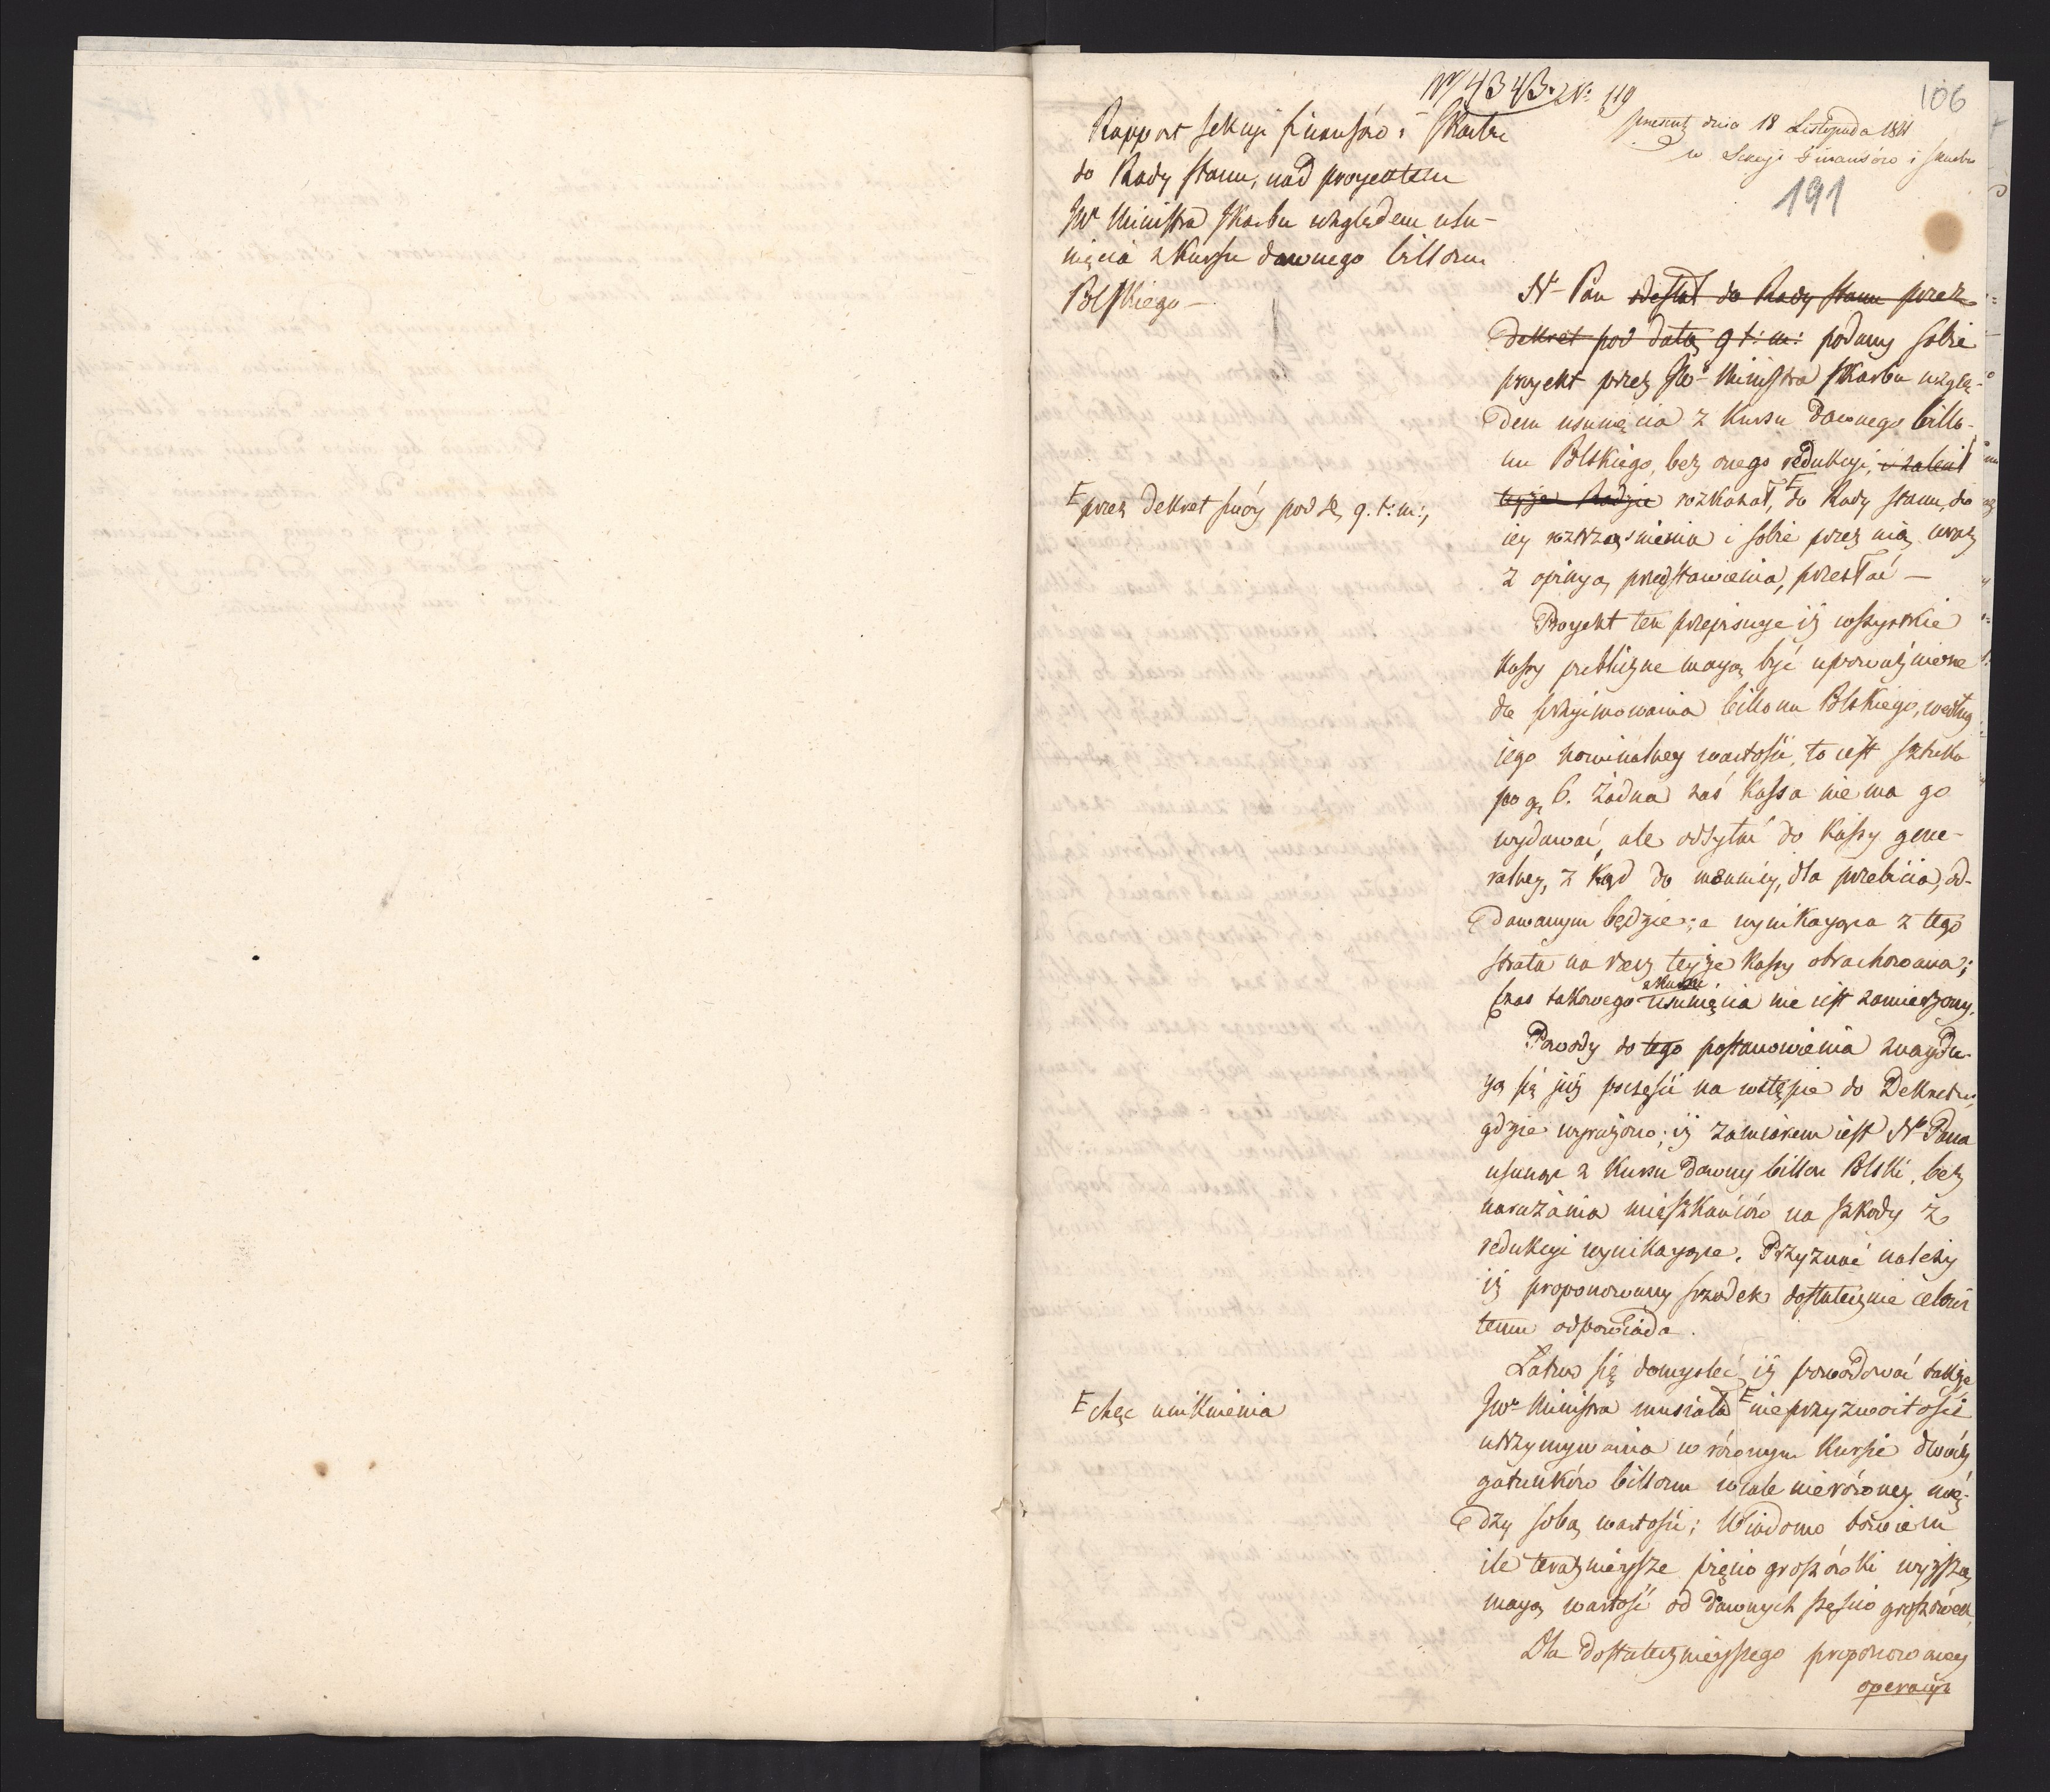 N 4343. N: 119
106
present dnia 18 Listopada 1811
w Sekcyi Finansów i Skarbu
191
Rapport Sekcyi finansów i Skarbu
do Rady Stanu, nad proyektem
JW Ministra Skarbu względem usu-
nięcia z Kursu dawnego billonu
Polskiego —
Nª Pan odesłał do Rady Stanu przez
Dekret pod datą 9 t: m: podany sobie
proyekt przez JWº Ministra Skarbu wzglę-
dem usunięcia z Kursu dawnego billo-
nu Polskiego, bez onego redukcyi, i zalecił
teyże Radzie rozkazał, do Rady Stanu, do
iey roztrząśnienia i sobie przez nią wraz
z opinyą przedstawienia, przesłać —
przez Dekret swóy pod d. 9. t: m:,
Proyekt ten przepisuje iż wszystkie
Kassy publiczne mayą być upoważnione
do przyimowania billonu Polskiego, według
jego nominalney wartości, to iest sztuka
po g. 6. Żadna zaś Kassa nie ma go
wydawać, ale odsyłać do Kassy gene-
ralney, z kąd do mennicy, dla przebicia, od-
dawanym będzie; a wynikayąca z tego
strata na rzecz teyże Kassy obrachowana;
Czas takowego z Kursu usunięcia nie iest zamierzony.
Powody do tego postanowienia znaydu-
yą się już poczęści na wstępie do Dekretu,
gdzie wyrażono; iż zamiarem iest Nº Pana
usunąć z Kursu dawny billon Polski, bez
narażania mieszkańców na szkody z
redukcyi wynikayące. Przyznać należy
iż proponowany srzodek dostatecznie celowi
temu odpowiada.
Łatwo się domyslić, iż powodować także
JWº Ministra musiała nieprzyzwoitości
chęć uniknienia
utrzymywania w równym Kursie dwóch
gatunków billonu wcale nierówney mię-
dzy sobą wartości; Wiadomo bowiem
ile teraźnieysze pięcio groszówki wyższą
mayą wartość od dawnych sześcio groszówek.
Dla dostatecznieyszego proponowaney
operacyi